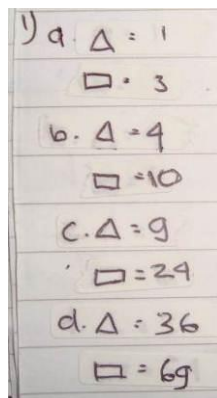 1) a. △ = 1
□ = 3
b. △ = 4
□ = 10
c. △ = 9
□ = 24
d. △ = 36
□ = 69